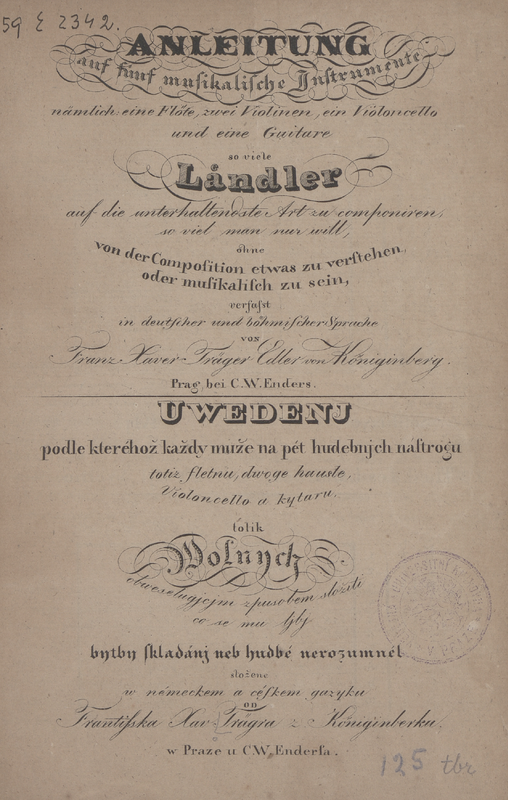 59 E 2342.
ANLEITUNG
auf fünf musikalische Instrumente
nämlich: eine Flöte, zwei Violinen, ein Violoncello
und eine Guitare
so viele
Ländler
auf die unterhaltendste Art zu componiren,
so viel man nur will,
ohne
von der Composition etwas zu verstehen,
oder musikalisch zu sein,
verfasst
in deutscher und böhmischer Sprache
von
Franz Xaver Träger Edler von Königinberg.
Prag, bei C. W. Enders.
UWEDENJ
podle kteréhož každy muže na pét hudebnjch nástrogu
totiz fletnu, dwoge hausle,
Violoncello a kytaru.
tolik
Wolnych
obweselugjcjm zpusobem složiti
co se mu ljbj
bytby skladánj neb hudbé nerozumnél
složene
w némeckem a céskem gazyku
od
Frantisska Xav Trägra z Königinberku.
w Praze u C.W. Endersa.
125 tbr